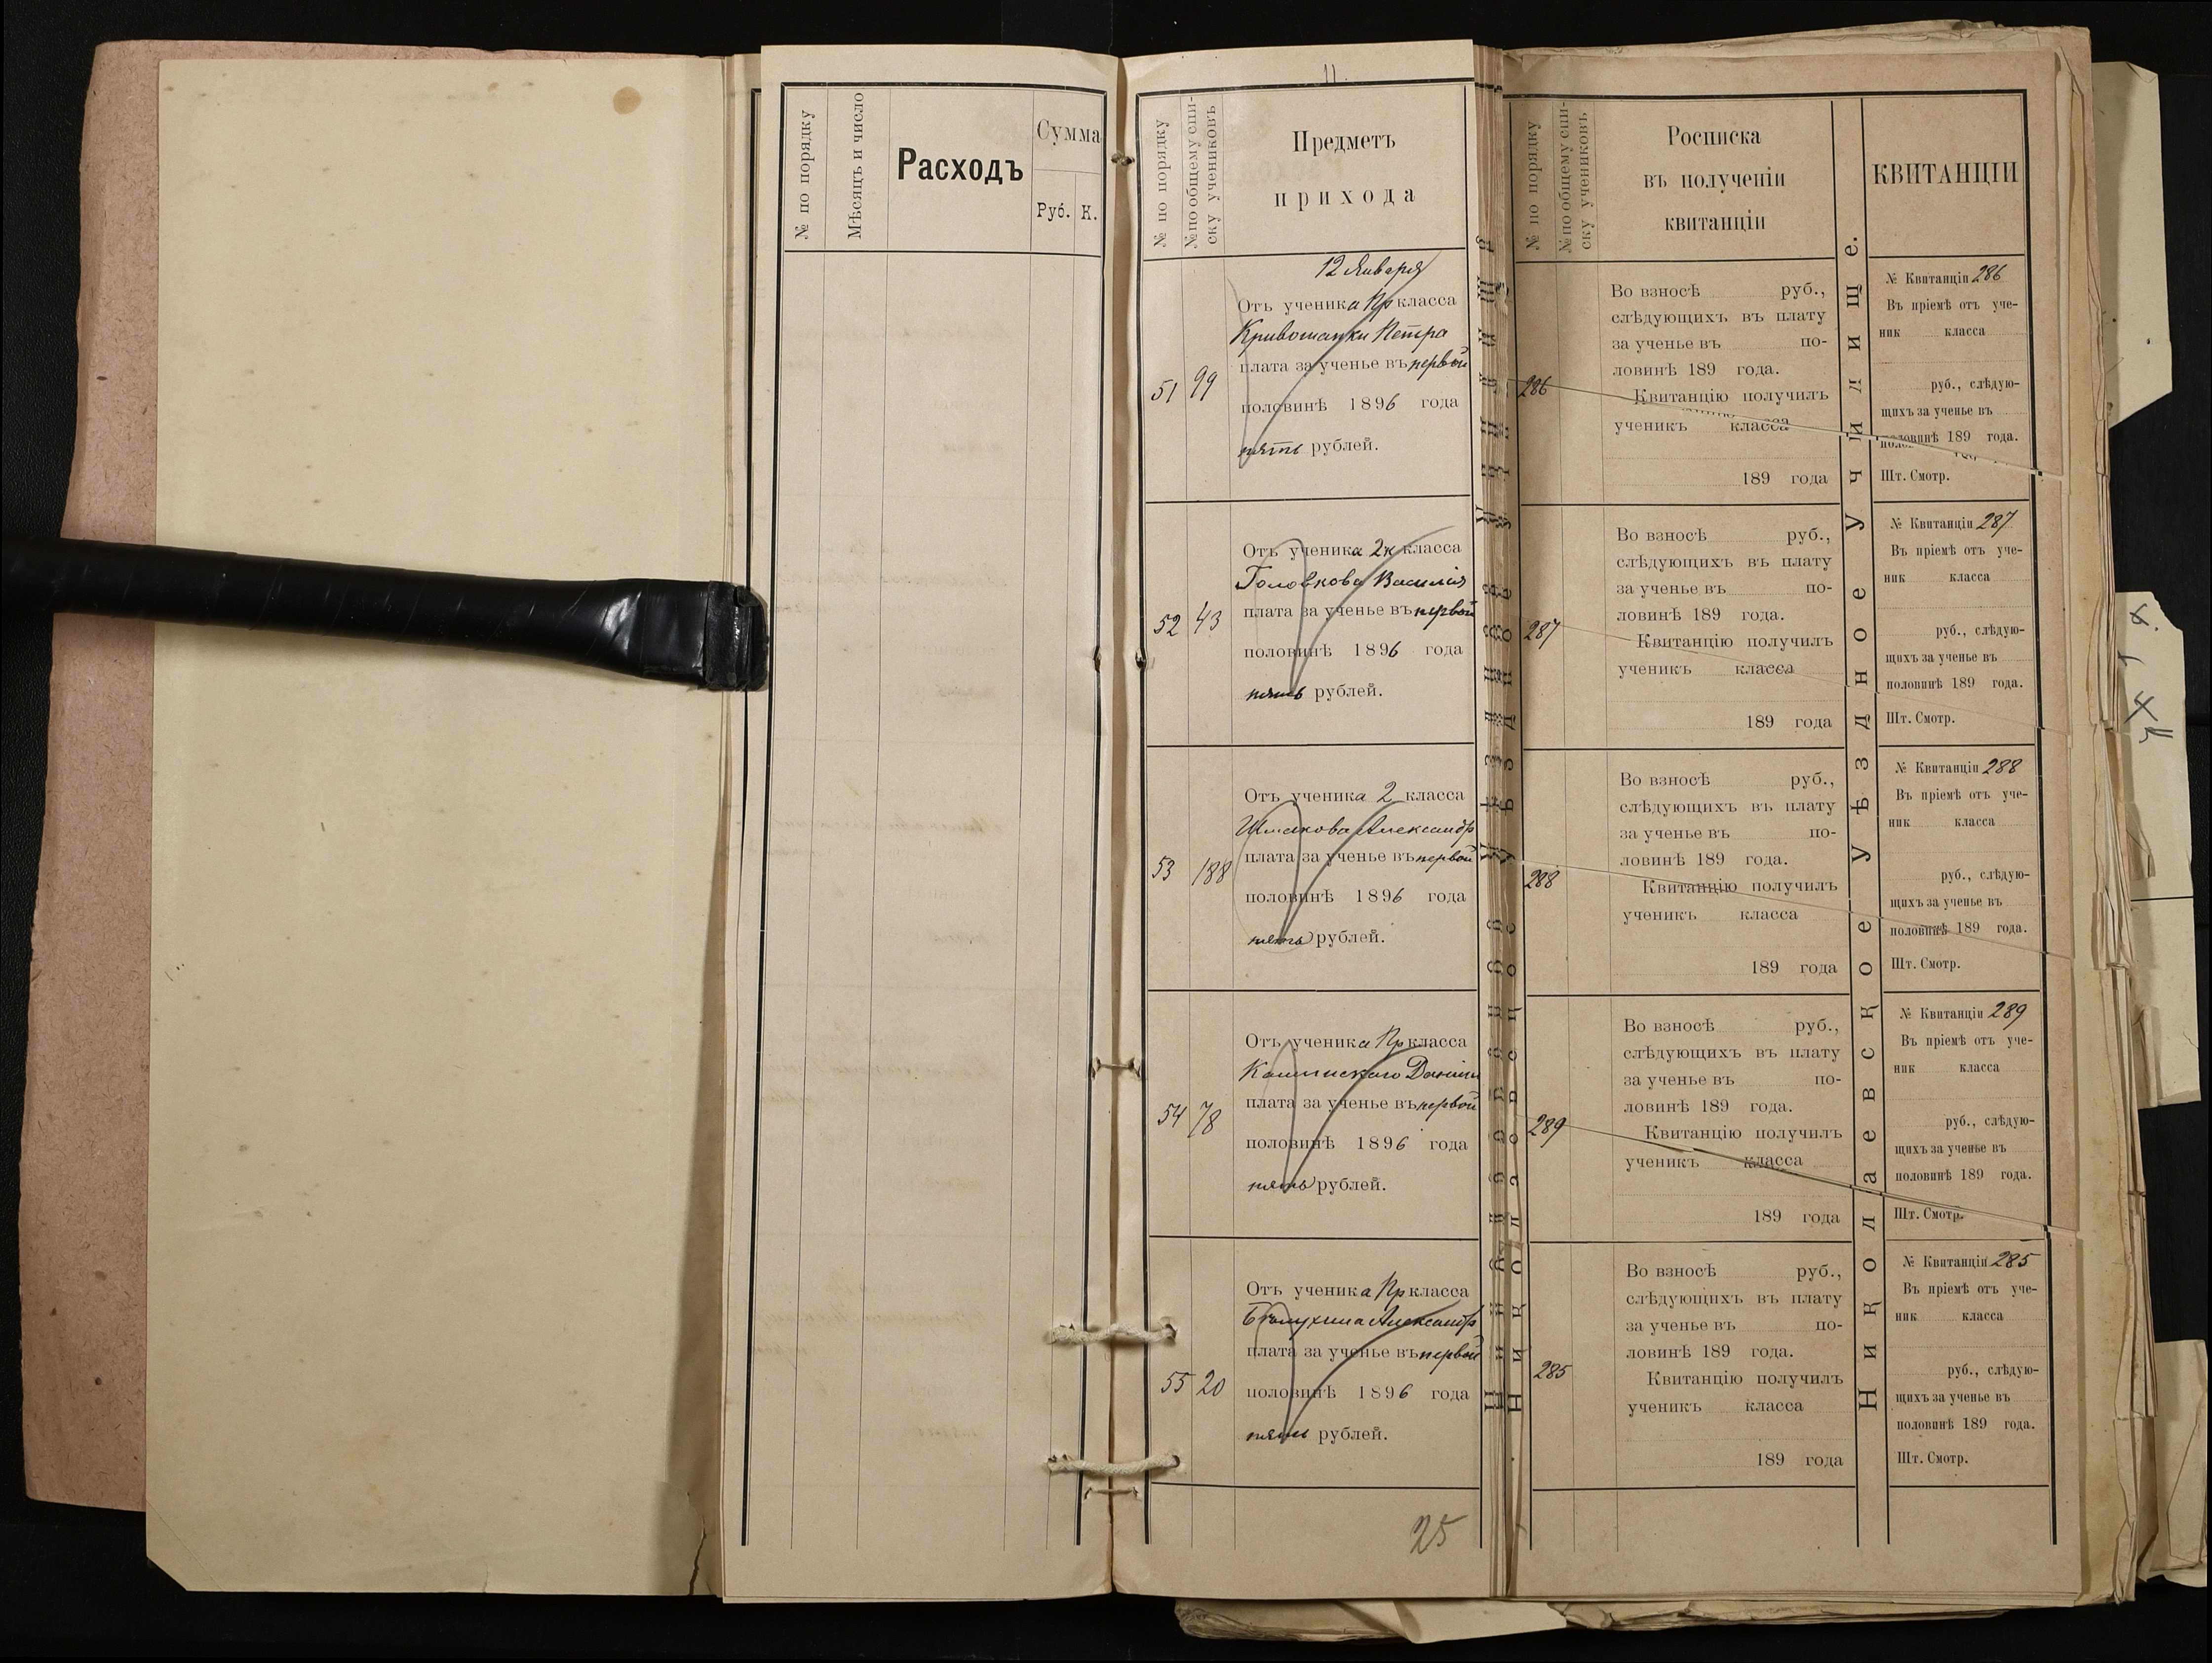 № по порядку
Мѣсяцъ и число
Расходъ
Сумма
Руб. К.
11
№ по порядку
№ по общему спи-
ску учениковъ
Предметъ
прихода
12 Января
Отъ ученика Пр класса
Кривошапки Петра
плата за ученье въ первой
51 99
половинѣ 1896 года
пять рублей.
Отъ ученика 2к класса
Головкова Василія
плата за ученье въ первой
52 43
половинѣ 1896 года
пять рублей.
Отъ ученика 2 класса
Александр
плата за ученье въ первой
53 188
половинѣ 1896 года
пять рублей.
Отъ ученика Пр класса
плата за ученье въ первой
54 78
половинѣ 1896 года
пять рублей.
Отъ ученика Пр класса
Александр
плата за ученье въ первой
55 20
половинѣ 1896 года
пять рублей.
25
№ по порядку
№ по общему спи-
ску учениковъ
Росписка
въ полученіи
квитанціи
286
Во взносѣ руб.,
слѣдующихъ въ плату
за ученье въ по-
ловинѣ 189 года.
Квитанцію получилъ
ученикъ класса
189 года
287
Во взносѣ руб.,
слѣдующихъ въ плату
за ученье въ по-
ловинѣ 189 года.
Квитанцію получилъ
ученикъ класса
189 года
288
Во взносѣ руб.,
слѣдующихъ въ плату
за ученье въ по-
ловинѣ 189 года.
Квитанцію получилъ
ученикъ класса
189 года
289
Во взносѣ руб.,
слѣдующихъ въ плату
за ученье въ по-
ловинѣ 189 года.
Квитанцію получилъ
ученикъ класса
189 года
285
Во взносѣ руб.,
слѣдующихъ въ плату
за ученье въ по-
ловинѣ 189 года.
Квитанцію получилъ
ученикъ класса
189 года
Николаевское Уѣздное Училище.
КВИТАНЦІИ
№ Квитанціи 286
Въ пріемѣ отъ уче-
ник класса
руб., слѣдую-
щихъ за ученье въ
половинѣ 189 года.
Шт. Смотр.
№ Квитанціи 287
Въ пріемѣ отъ уче-
ник класса
руб., слѣдую-
щихъ за ученье въ
половинѣ 189 года.
Шт. Смотр.
№ Квитанціи 288
Въ пріемѣ отъ уче-
ник класса
руб., слѣдую-
щихъ за ученье въ
половинѣ 189 года.
Шт. Смотр.
№ Квитанціи 289
Въ пріемѣ отъ уче-
ник класса
руб., слѣдую-
щихъ за ученье въ
половинѣ 189 года.
Шт. Смотр.
№ Квитанціи 285
Въ пріемѣ отъ уче-
ник класса
руб., слѣдую-
щихъ за ученье въ
половинѣ 189 года.
Шт. Смотр.